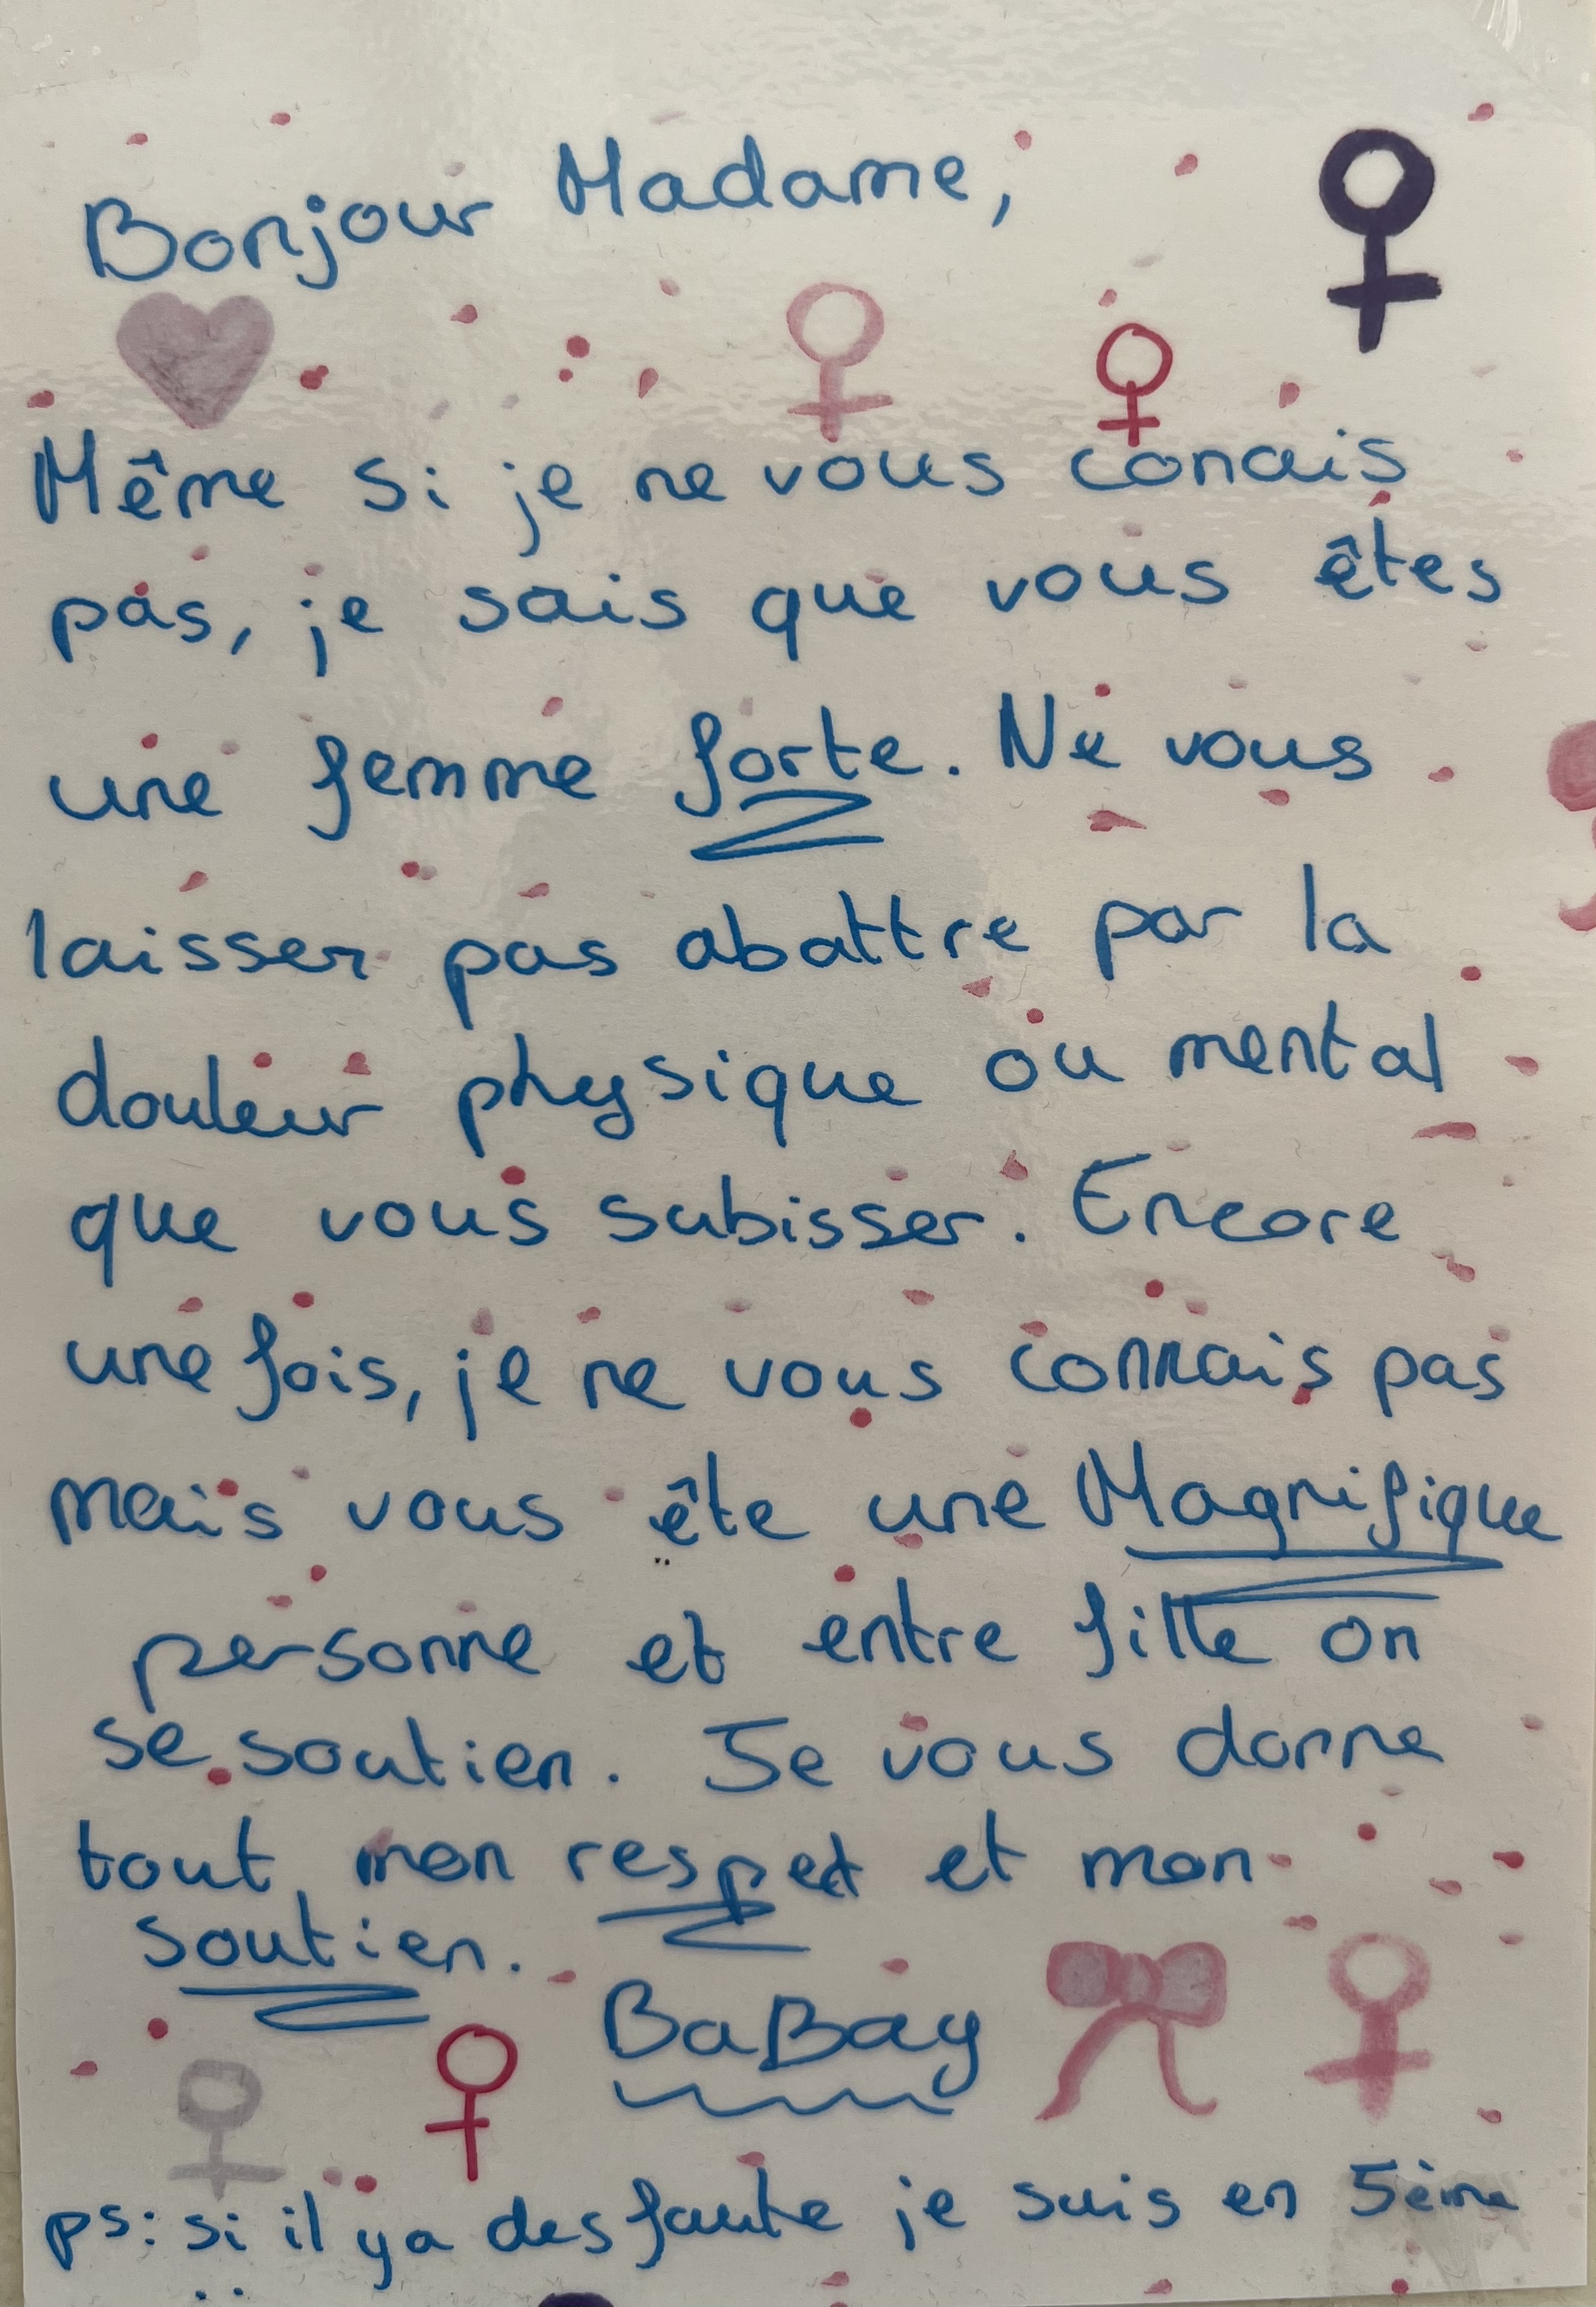 Bonjour Madame,
Même si je ne vous conais
pas, je sais que vous êtes
une femme forte. Ne vous
laisser pas abattre par la
douleur physique ou mental
que vous subisser. Encore
une fois, je ne vous connais pas
mais vous ête une Magnifique
personne et entre fille on
se soutien. Je vous donne
tout mon respet et mon
soutien.
BaBay
ps: si il y a des faute je suis en 5ème